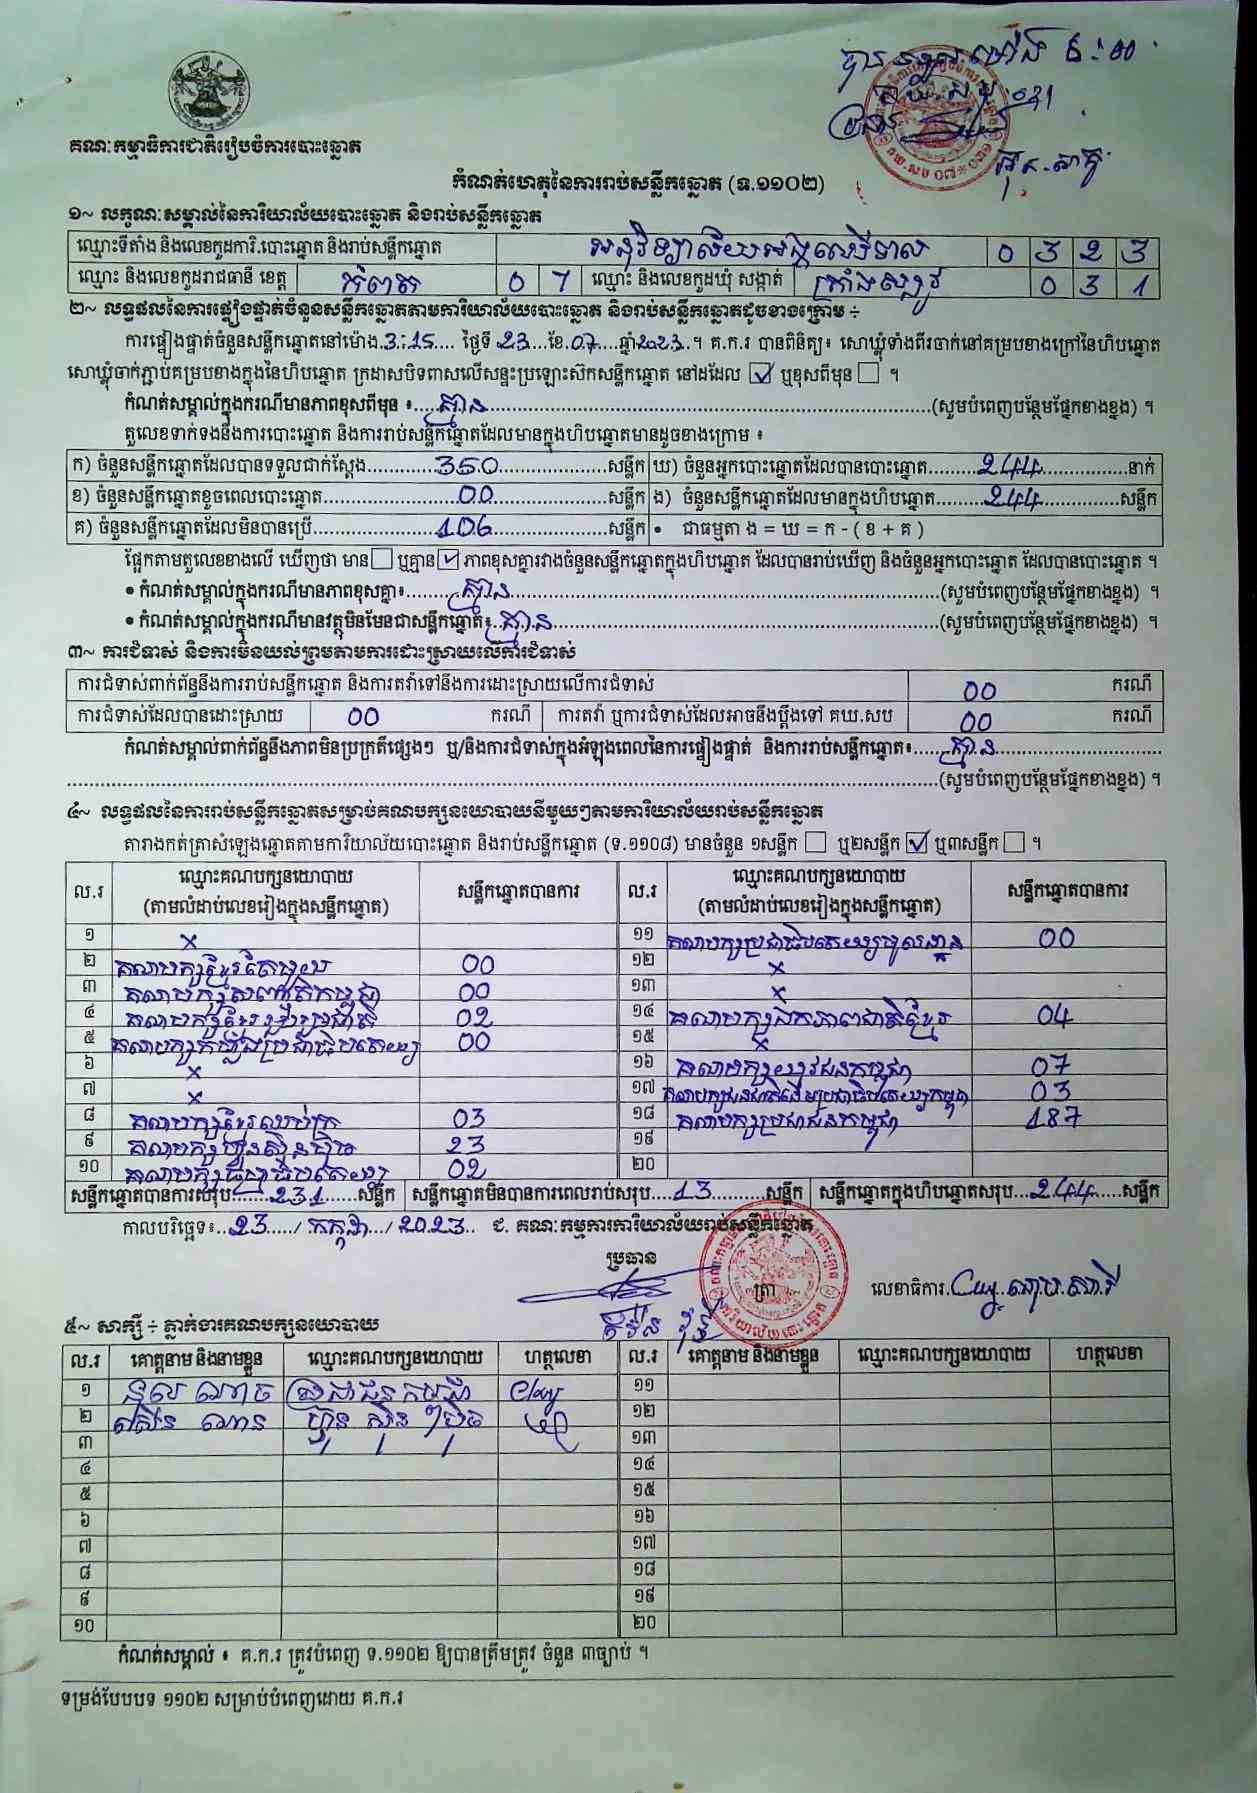 បានទទួលម៉ោង 6:00
គណៈកម្មាធិការជាតិរៀបចំការបោះឆ្នោត
កំណត់ហេតុនៃការរាប់សន្លឹកឆ្នោត (ទ.១១០២)
១~ លក្ខណៈសម្គាល់នៃការិយាល័យបោះឆ្នោត និងរាប់សន្លឹកឆ្នោត
ឈ្មោះទីតាំង និងលេខកូដការិ.បោះឆ្នោត និងរាប់សន្លឹកឆ្នោត អនុវិទ្យាល័យអង្គ 0 3 2 3
ឈ្មោះ និងលេខកូដរាជធានី ខេត្ត កំពត 0 7 ឈ្មោះ និងលេខកូដឃុំ សង្កាត់ ក្រាំងស្បូវ 0 3 1
២~ លទ្ធផលនៃការផ្ទៀងផ្ទាត់ចំនួនសន្លឹកឆ្នោតតាមការិយាល័យបោះឆ្នោត និងរាប់សន្លឹកឆ្នោតដូចខាងក្រោម ÷
ការផ្ទៀងផ្ទាត់ចំនួនសន្លឹកឆ្នោតនៅម៉ោង.3:15.... ថ្ងៃទី.23....ខែ.07....ឆ្នាំ2023..។ គ.ក.រ បានពិនិត្យ៖ សោឃ្លុំទាំងពីរចាក់នៅគម្របខាងក្រៅនៃហិបឆ្នោត
សោឃ្លុំចាក់ភ្ជាប់គម្របខាងក្នុងនៃហិបឆ្នោត ក្រដាសបិទពាសលើសន្ទះប្រឡោះស៊កសន្លឹកឆ្នោត នៅដដែល ☑ ឬខុសពីមុន ☐ ។
កំណត់សម្គាល់ក្នុងករណីមានភាពខុសពីមុន ៖....គ្មាន....(សូមបំពេញបន្ថែមផ្នែកខាងខ្នង) ។
តួលេខទាក់ទងនឹងការបោះឆ្នោត និងការរាប់សន្លឹកឆ្នោតដែលមានក្នុងហិបឆ្នោតមានដូចខាងក្រោម ៖
ក) ចំនួនសន្លឹកឆ្នោតដែលបានទទួលជាក់ស្តែង....350....សន្លឹក ឃ) ចំនួនអ្នកបោះឆ្នោតដែលបានបោះឆ្នោត....244....នាក់
ខ) ចំនួនសន្លឹកឆ្នោតខូចពេលបោះឆ្នោត....00....សន្លឹក ង) ចំនួនសន្លឹកឆ្នោតដែលមានក្នុងហិបឆ្នោត....244....សន្លឹក
គ) ចំនួនសន្លឹកឆ្នោតដែលមិនបានប្រើ....106....សន្លឹក • ជាធម្មតា ង = ឃ = ក - ( ខ + គ )
ផ្អែកតាមតួលេខខាងលើ ឃើញថា មាន ☐ ឬគ្មាន ☑ ភាពខុសគ្នារវាងចំនួនសន្លឹកឆ្នោតក្នុងហិបឆ្នោត ដែលបានរាប់ឃើញ និងចំនួនអ្នកបោះឆ្នោត ដែលបានបោះឆ្នោត ។
• កំណត់សម្គាល់ក្នុងករណីមានភាពខុសគ្នា៖....គ្មាន....(សូមបំពេញបន្ថែមផ្នែកខាងខ្នង) ។
• កំណត់សម្គាល់ក្នុងករណីមានវត្ថុមិនមែនជាសន្លឹកឆ្នោត៖..គ្មាន....(សូមបំពេញបន្ថែមផ្នែកខាងខ្នង) ។
៣~ ការជំទាស់ និងការមិនយល់ព្រមតាមការដោះស្រាយលើការជំទាស់
ការជំទាស់ពាក់ព័ន្ធនឹងការរាប់សន្លឹកឆ្នោត និងការតវ៉ាទៅនឹងការដោះស្រាយលើការជំទាស់ 00 ករណី
ការជំទាស់ដែលបានដោះស្រាយ 00 ករណី ការតវ៉ា ឬការជំទាស់ដែលអាចនឹងប្តឹងទៅ គឃ.សប 00 ករណី
កំណត់សម្គាល់ពាក់ព័ន្ធនឹងភាពមិនប្រក្រតីផ្សេងៗ ឬ/និងការជំទាស់ក្នុងអំឡុងពេលនៃការផ្ទៀងផ្ទាត់ និងការរាប់សន្លឹកឆ្នោត៖....គ្មាន....
....(សូមបំពេញបន្ថែមផ្នែកខាងខ្នង) ។
៤~ លទ្ធផលនៃការរាប់សន្លឹកឆ្នោតសម្រាប់គណបក្សនយោបាយនីមួយៗតាមការិយាល័យរាប់សន្លឹកឆ្នោត
តារាងកត់ត្រាសំឡេងឆ្នោតតាមការិយាល័យបោះឆ្នោត និងរាប់សន្លឹកឆ្នោត (ទ.១១០៨) មានចំនួន ១សន្លឹក ☐ ឬ២សន្លឹក ☑ ឬ៣សន្លឹក ☐ ។
ល.រ ឈ្មោះគណបក្សនយោបាយ (តាមលំដាប់លេខរៀងក្នុងសន្លឹកឆ្នោត) សន្លឹកឆ្នោតបានការ ល.រ ឈ្មោះគណបក្សនយោបាយ (តាមលំដាប់លេខរៀងក្នុងសន្លឹកឆ្នោត) សន្លឹកឆ្នោតបានការ
១ × ១១ គណបក្សប្រជាធិបតេយ្យមូលដ្ឋាន 00
២ គណបក្សខ្មែរតែមួយ 00 ១២ ×
៣ គណបក្សសញ្ជាតិកម្ពុជា 00 ១៣ ×
៤ គណបក្សខ្មែររួបរួមជាតិ 02 ១៤ គណបក្សឯកភាពជាតិខ្មែរ 04
៥ គណបក្សកម្លាំងប្រជាធិបតេយ្យ 00 ១៥ ×
៦ × ១៦ គណបក្សយុវជនកម្ពុជា 07
៧ × ១៧ គណបក្សជនជាតិដើមប្រជាធិបតេយ្យកម្ពុជា 03
៨ គណបក្សខ្មែរឈប់ក្រ 03 ១៨ គណបក្សប្រជាជនកម្ពុជា 187
៩ គណបក្សហ្វ៊ុនស៊ិនប៉ិច 23 ១៩
១០ គណបក្សធម្មាធិបតេយ្យ 02 ២០
សន្លឹកឆ្នោតបានការសរុប....231....សន្លឹក សន្លឹកឆ្នោតមិនបានការពេលរាប់សរុប....13....សន្លឹក សន្លឹកឆ្នោតក្នុងហិបឆ្នោតសរុប...244....សន្លឹក
កាលបរិច្ឆេទ៖..23..../ កក្កដា.../ 2023.. ជ. គណៈកម្មការការិយាល័យរាប់សន្លឹកឆ្នោត
ប្រធាន
ត្រា
លេខាធិការ
៥~ សាក្សី ÷ ភ្នាក់ងារគណបក្សនយោបាយ
ល.រ គោត្តនាម និងនាមខ្លួន ឈ្មោះគណបក្សនយោបាយ ហត្ថលេខា ល.រ គោត្តនាម និងនាមខ្លួន ឈ្មោះគណបក្សនយោបាយ ហត្ថលេខា
១ ប្រជាជនកម្ពុជា ១១
២ ហ៊្វុនស៊ិនប៉ិច ១២
៣ ១៣
៤ ១៤
៥ ១៥
៦ ១៦
៧ ១៧
៨ ១៨
៩ ១៩
១០ ២០
កំណត់សម្គាល់ ៖ គ.ក.រ ត្រូវបំពេញ ទ.១១០២ ឱ្យបានត្រឹមត្រូវ ចំនួន ៣ច្បាប់ ។
ទម្រង់បែបបទ ១១០២ សម្រាប់បំពេញដោយ គ.ក.រ